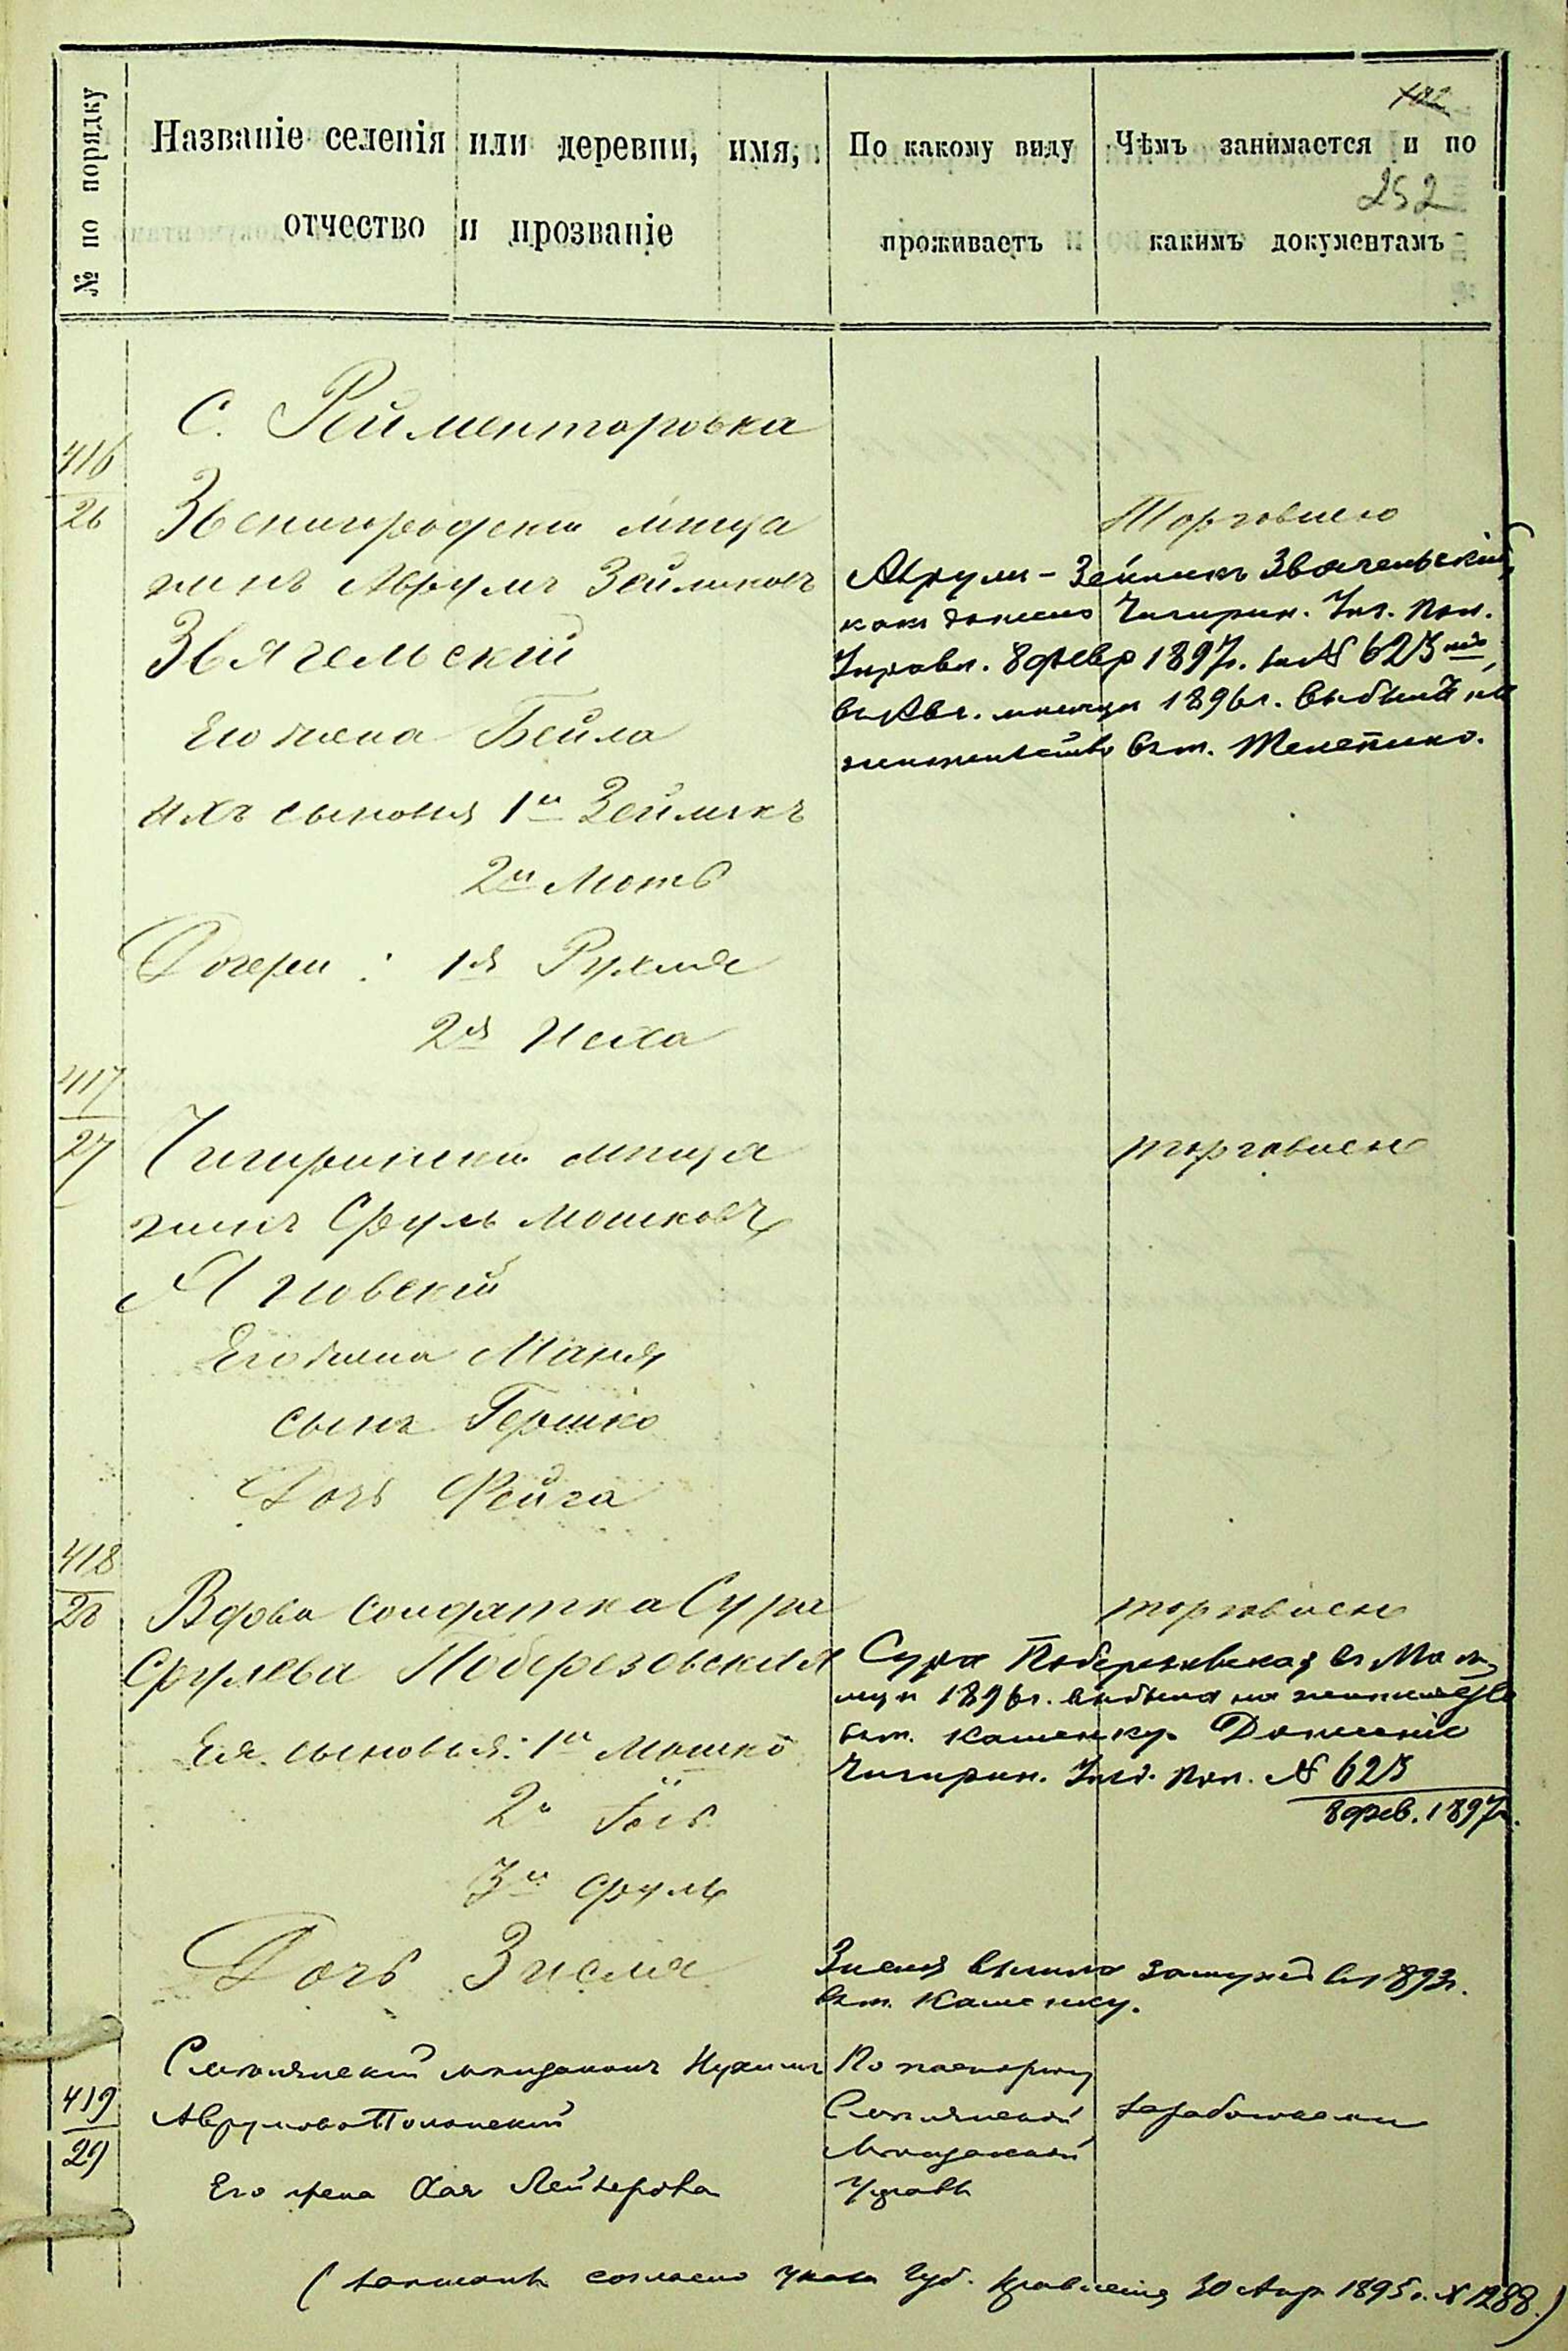 № по порядку
Названіе селенія или деревни, имя,
отчество и прозваніе
По какому виду
проживаетъ
Чѣмъ занимается и по
какимъ документамъ
182
252
С. Рейментаровка
416
26
Звенигородскій мѣща
нинъ Аврумъ Зейликовъ
Звягельскій
Его жена Бейла
ихъ сыновья 1й Зейликъ
2й Моть
Дочери: 1я Рухля
2я Песха
Торговлею
Аврумъ-Зейликъ Звягельскій,
какъ донесло Чигирин. Уѣз. Пол.
Управл. 8 февр 1897г. за № 623мъ,
въ Авг. мѣсяцѣ 1896г. выбылъ на
жительство въ м. Телепино.
417
27
Чигиринскій мѣща
нинъ Сруль Мошковъ
Ягновскій
Его жена Маня
сынъ Гершко
Дочь Фейга
торговлею
418
28
Вдова солдатка Сура
Срулева Поберезовская
Ея сыновья: 1й Мошко
2й Іось
3й Сруль
Дочь Зисля
торговлею
Сура Поберезовская въ Маѣ м
1896г. выбыла на жительство
въ м. Каменку. Донесеніе
Чигирин. Уѣзд. Пол. № 623
8 фев. 1897г.
Зисля вышла замужъ въ 1893г.
въ м. Каменку.
419
29
Смѣлянскій мѣщанинъ Нухимъ
Аврумовъ Полонскій
Его жена Хая Лейзерова
По паспорту
Смѣлянской
Мѣщанской
Управы
заработками
(записанъ согласно указа Губ. Правленія 30 Апр 1895г. № 1288.)